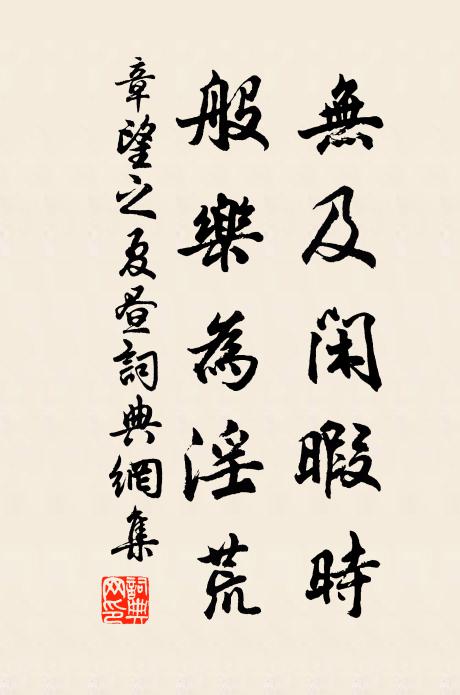 無及閑暇時
般樂為淫荒
章望之夏晝詞典網集
詞典
网印